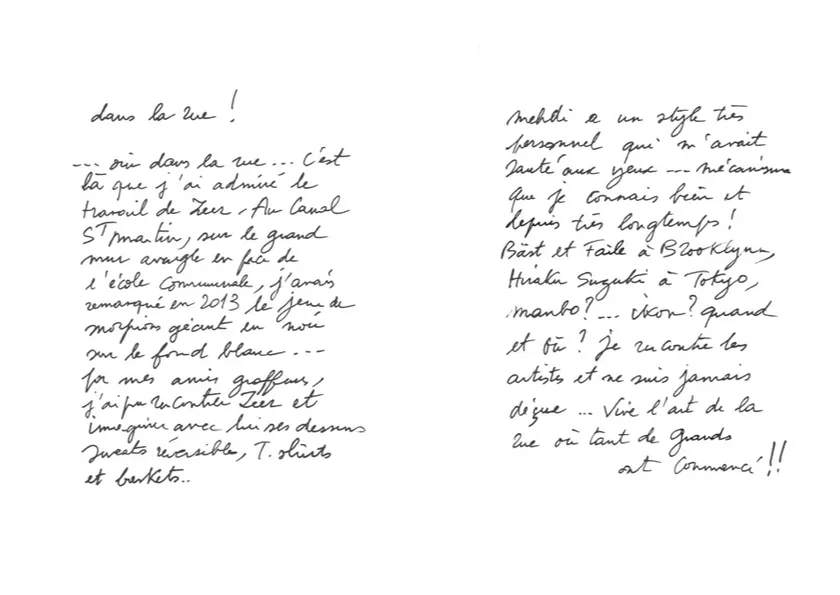 dans la rue !
--- oui dans la rue ... C'est
là que j'ai admiré le
travail de Zeer. Au Canal
ST Martin, sur le grand
mur aveugle en face de
l'école Communale, j'avais
remarqué en 2013 le jeu de
morpions géant en noir
sur le fond blanc ---
par mes amis graffeurs,
j'ai pu rencontrer Zeer et
imaginer avec lui ses dessins
sweats réversible, T. shirts
et baskets..
mehdi a un style très
personnel qui m'avait
sauté aux yeux --- mécanisme
que je connais bien et
depuis très longtemps !
Bäst et Faile à Brooklyn,
Hiraku Suzuki à Tokyo,
manbo ? ... ikon ? quand
et où ? je rencontre les
artistes et ne suis jamais
déçue ... Vive l'art de la
rue où tant de grands
ont Commencé !!